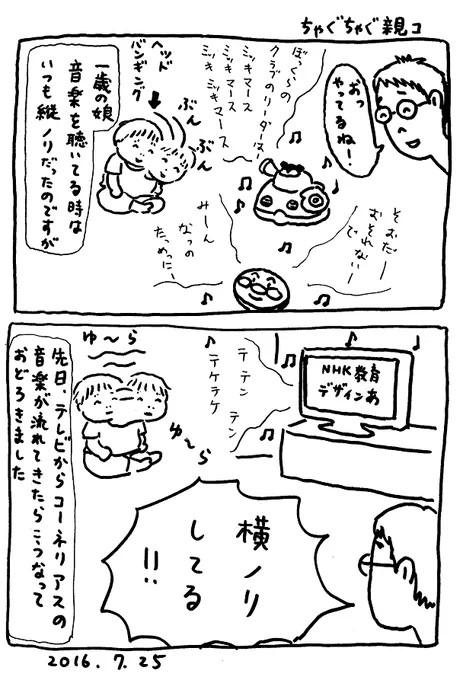 ちゃぐちゃぐ親コ
おっ
やってるねー!
ぼっくらの
クラブのリーダーはー
ミッキマース
ミッキマース
ミッキミッキマース
ヘッド
バンギング
ぶん
ぶん
一歳の娘
音楽を聴いてる時は
いつも縦ノリだったのですが
そむだー
おそれないー
で
みーん
なっの
たっめにー
NHK教育
デザインあ
テテン テン
テケラケ
ゆ〜ら
ゆ〜ら
先日、テレビからコーネリアスの
音楽が流れてきたらこうなって
おどろきました
横ノリ
してる
!!
2016.7.25